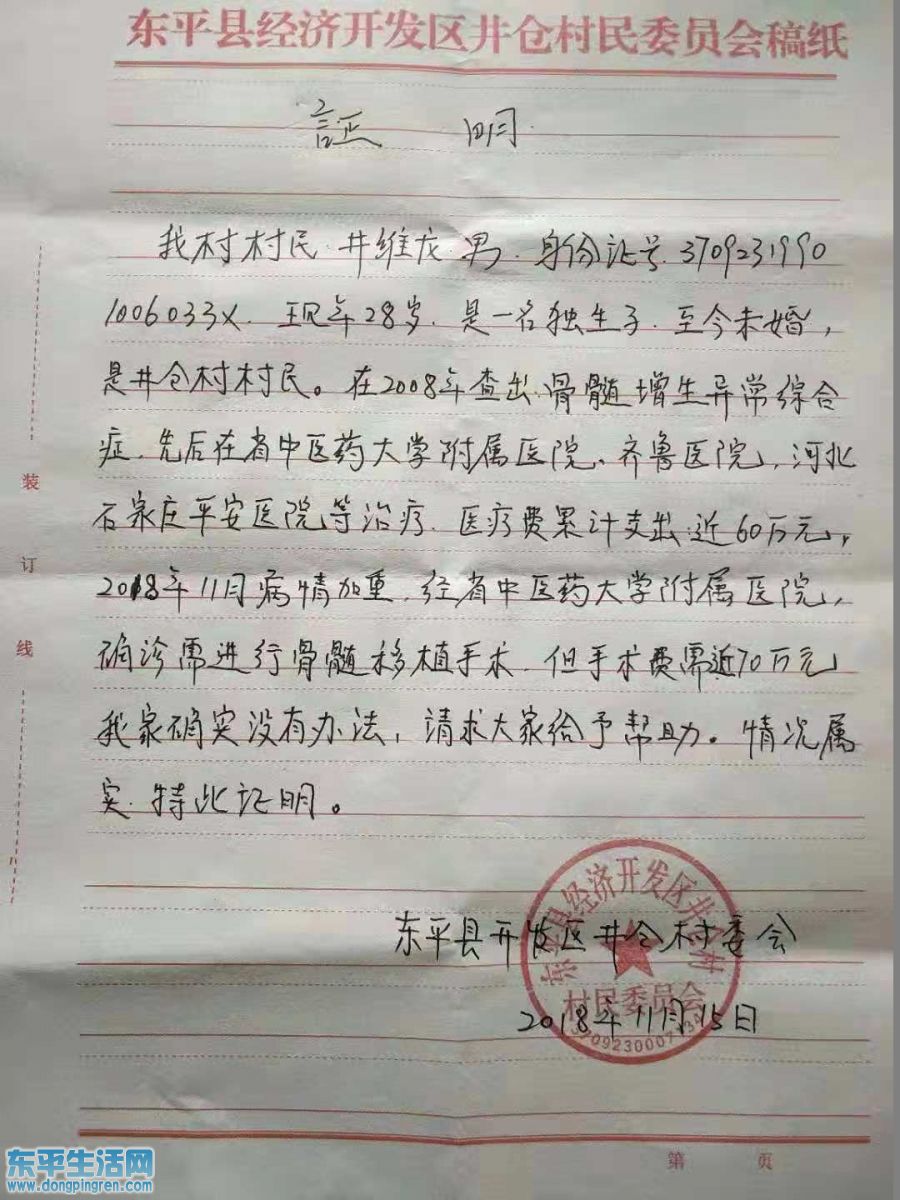 东平县经济开发区井仓村民委员会稿纸
证 明.
我村村民.井维龙 男.身份证号.3709231990
1006033X.现年28岁.是一名独生子.至今未婚,
是井仓村村民。在2008年查出骨髓增生异常综合
症.先后在省中医药大学附属医院、齐鲁医院,河北
石家庄平安医院等治疗.医疗费累计支出近60万元,
2018年11月病情加重.经省中医药大学附属医院,
确诊需进行骨髓移植手术.但手术费需近70万元
我家确实没有办法,请求大家给予帮助。情况属
实.特此证明。
装
订
线
东平县开发区井仓村委会
2018年11月15日
东平县经济开发区井仓村
村民委员会
第 页
东平生活网
www.dongpingren.com